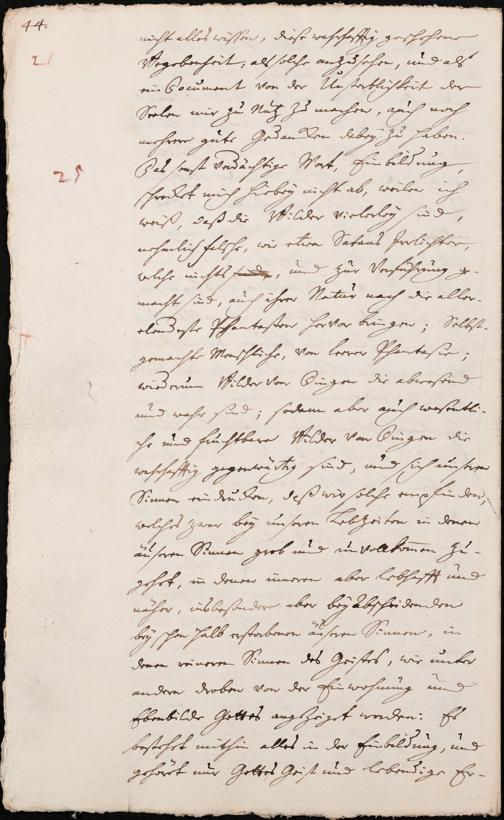 44.
nicht alles wissen, diese wahrhafftig geschehene
21
Begebenheit, als solche anzusehen, und als
ein Document von der Unsterblichkeit der
Seelen mir zu Nutz zu machen, auch noch
mehrere gute Gedancken dabey zu haben.
25
Das sonst verdächtige Wort, Einbildung,
schrecket mich hiebey nicht ab, weilen ich
weiß, daß die Bilder vielerley sind,
nehmlich falsche, wie etwa Satans Irrlichter,
welche nichts, und zur Verführung ge-
macht sind, auch ihrer Natur nach die aller-
elendeste Phantasten hervor bringen; Selbst-
gemachte Menschliche, von leerer Phantasie;
wiederum Bilder von Dingen die abwesend
und wahr sind; sodann aber auch wesentli-
che und fruchtbare Bilder von Dingen die
wahrhafftig gegenwärtig sind, und sich unseren
Sinnen eindrucken, daß wir solche empfinden,
welches zwar bey unseren Lebzeiten in denen
äuseren Sinnen grob und unvollkomen zu-
gehet, in denen inneren aber lebhafft und
näher, insbesondere aber bey Abscheidenden
bey schon halb erstorbenen äuseren Sinnen, in
denen reineren Sinnen des Geistes, wie unter
andern droben von der Einwohnung und
Ebenbilde Gottes angezeiget worden: Es
bestehet mithin alles in der Einbildung, und
gehört nur Gottes Geist und lebendige Er-